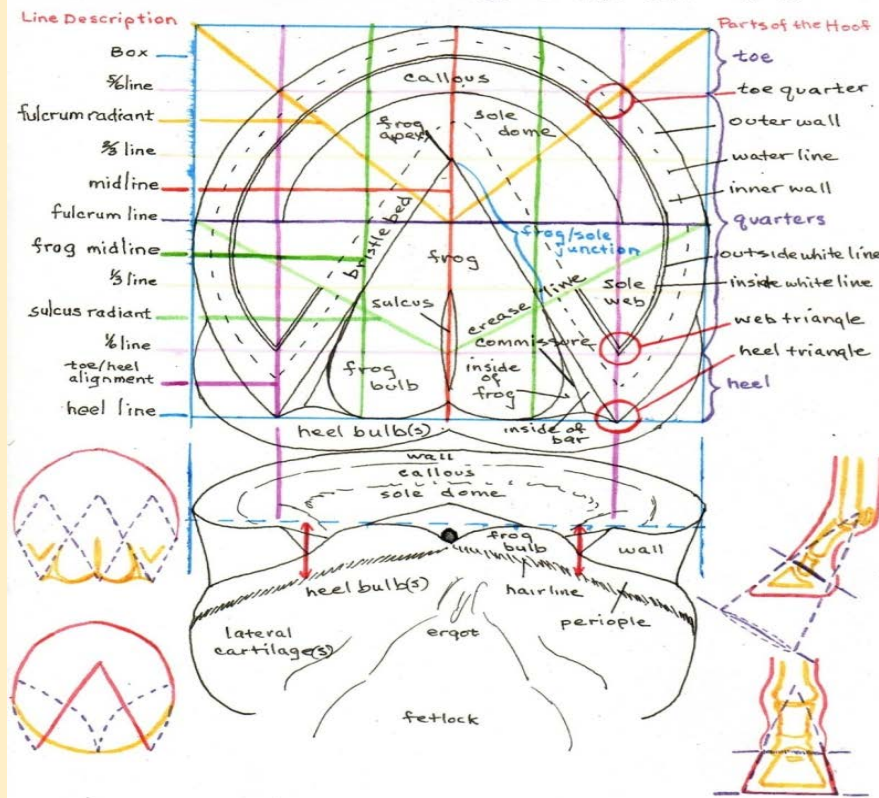 Line Description
Box
5/6 line
fulcrum radiant
2/3 line
midline
fulcrum line
frog midline
1/3 line
sulcus radiant
1/6 line
toe/heel
alignment
heel line
Parts of the Hoof
toe
toe quarter
outer wall
water line
inner wall
quarters
outside white line
inside white line
web triangle
heel triangle
heel
callous
frog
apex
sole
dome
bristle bed
frog/sole
junction
frog
sulcus
crease line
sole
web
commissure
frog
bulb
inside
of
frog
inside of
bar
heel bulb(s)
wall
callous
sole dome
frog
bulb
wall
heel bulb(s)
hairline
periople
lateral
cartilage(s)
ergot
fetlock